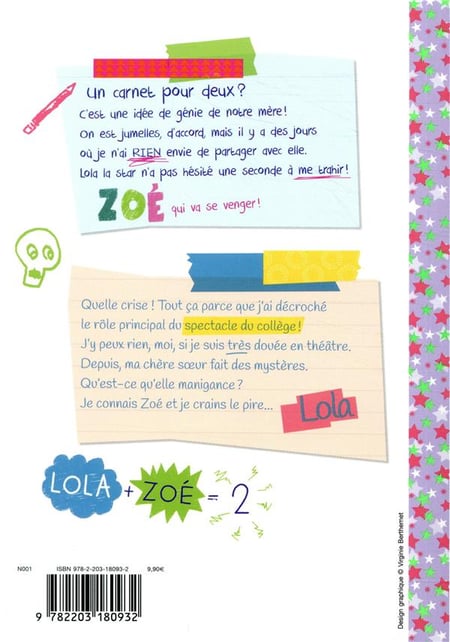 Un carnet pour deux ?
C'est une idée de génie de notre mère !
On est jumelles, d'accord, mais il y a des jours
où je n'ai RIEN envie de partager avec elle.
Lola la star n'a pas hésité une seconde à me trahir !
ZOÉ qui va se venger !
Quelle crise ! Tout ça parce que j'ai décroché
le rôle principal du spectacle du collège !
J'y peux rien, moi, si je suis très douée en théâtre.
Depuis, ma chère sœur fait des mystères.
Qu'est-ce qu'elle manigance ?
Je connais Zoé et je crains le pire...
Lola
LOLA + ZOÉ = 2
N001 ISBN 978-2-203-18093-2 9,90€
9 782203 180932
Design graphique © Virginie Berthemet